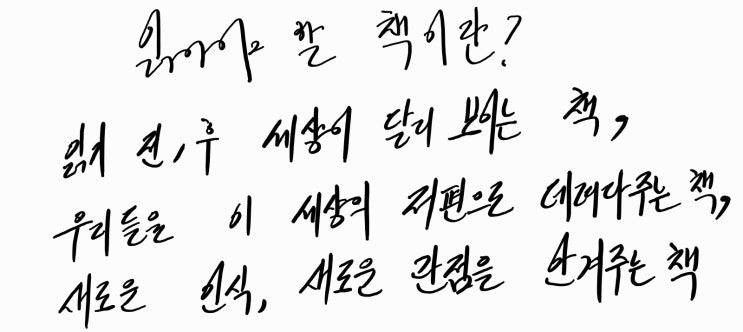 읽어야 할 책이란?
읽기 전, 후 세상이 달리 보이는 책,
우리들을 이 세상의 저편으로 데려다주는 책,
새로운 인식, 새로운 관점을 안겨주는 책